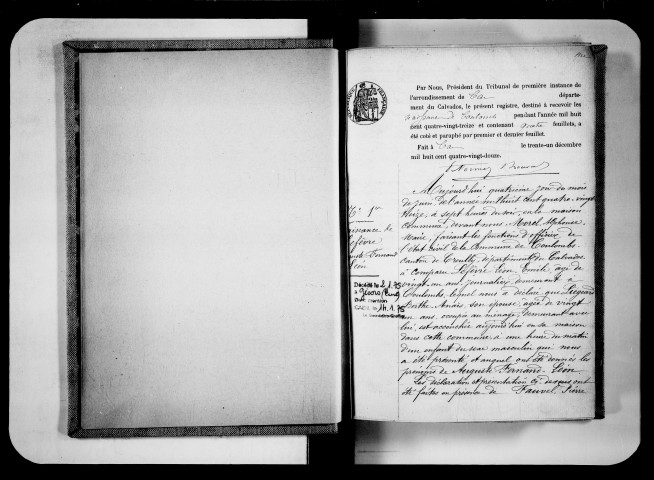 Par Nous, Président du Tribunal de première instance de
l'arrondissement de Caen départe-
ment du Calvados, le présent registre, destiné à recevoir les
naissances de Coulombs pendant l'année mil huit
cent quatre-vingt-treize et contenant quatre feuillets, a
été coté et paraphé par premier et dernier feuillet.
Fait à Caen le trente-un décembre
mil huit cent quatre-vingt-douze.
Aujourd'hui quatrième jour du mois
de juin de l'année mil huit cent quatre-vingt
treize, à sept heures du soir, en la maison
commune, devant nous Morel Alphonse
Marie, faisant les fonctions d'officier de
l'état civil de la Commune de Coulombs
Canton de Creully, département du Calvados,
a comparu Lefèvre Léon Emile, âgé de
vingt un ans, journalier, demeurant à
Coulombs, lequel nous a déclaré que
Berthe Anaïs, son épouse, âgée de vingt
un ans, occupée au ménage, demeurant avec
lui, est accouchée aujourd'hui en sa maison
dans cette commune à une heure du matin
d'un enfant du sexe masculin qui nous
a été présenté, et auquel ont été donnés les
prénoms de Auguste Fernand Léon.
Les déclaration et présentation ci-dessus ont
été faites en présence de Fauvel Pierre
N° 1er
Naissance de
Lefèvre
Auguste Fernand
Léon
Décédé le
à
Dont mention